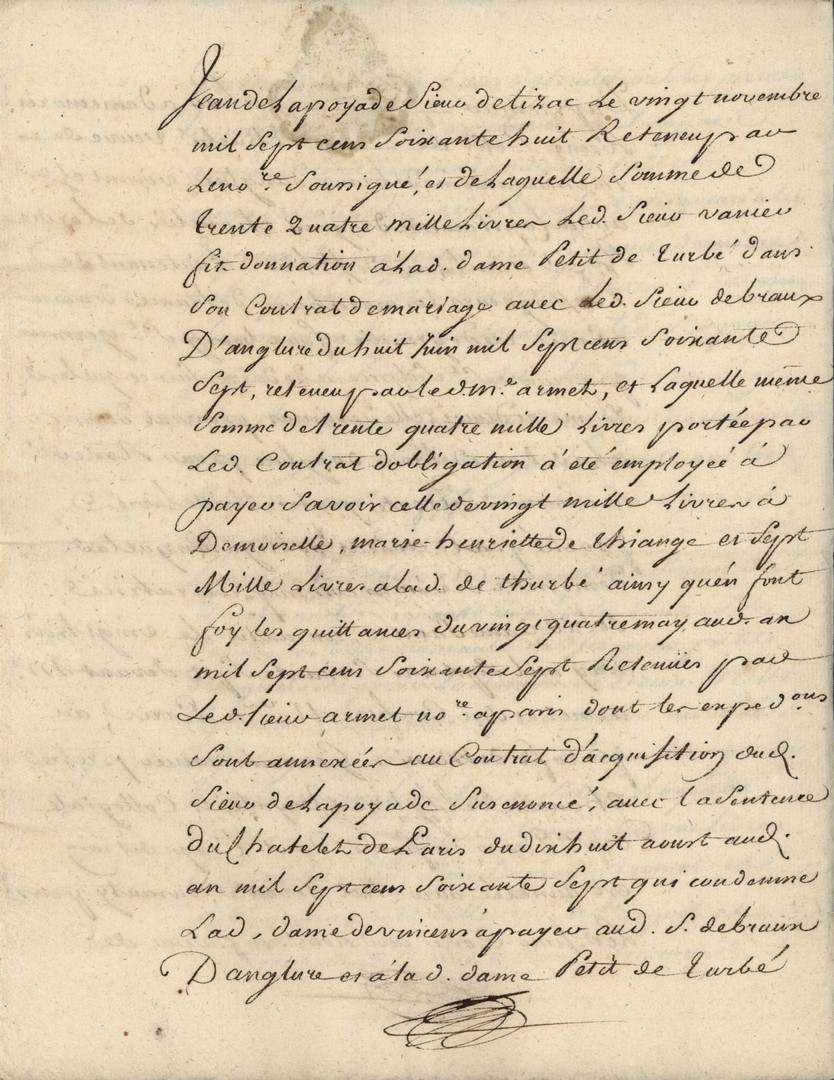 Jean de Lapoyade Sieur de tizac Le vingt novembre
mil Sept cens Soixante huit Reteneu par
Leno.re Soussigné, et de Laquelle Somme de
trente Quatre mille Livres Led. Sieur vanier
fit donnation á Lad. dame Petit de turbé dans
Son Contrat de mariage avec Led. Sieur de braux
D'anglure du huit Juin mil Sept cens Soixante
Sept, reteneu par led. m.e armet, et Laquelle même
Somme de trente quatre mille Livres portée par
Led. Contrat dobligation à été employeé à
payer Savoir celle de vingt mille Livres à
Demoiselle, marie-henriette de thiange et Sept
Mille Livres alad. de thurbé ainsy quén font
foy les quittances du vingt quatre may aud. an
mil Sept cens Soixante Sept Retenües par
Led. Sieur armet no.re a paris dont les exped.ons
Sont annexées au Contrat d'acquisition dud.
Sieur de Lapoyade Susenoncé, avec la Sentence
du Chatelet de Paris du dixhuit aoust aud.
an mil Sept cens Soixante Sept qui condemne
Lad. dame de vincens á payer aud. S. de braux
D'anglure et á lad. dame Petit de turbé